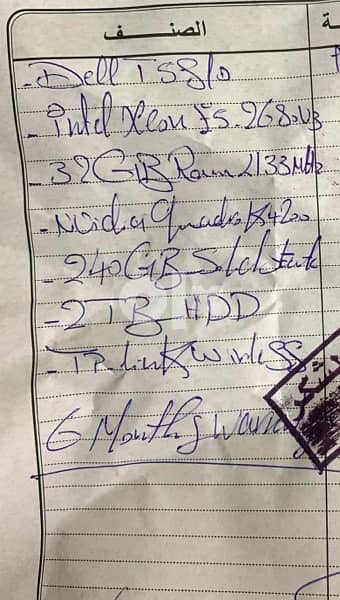 الصنــــف
ـة
- Dell T5810
- Intel Xeon E5-2680v3
- 32GB Ram 2133MHz
- Nvidia Quadro K4200
- 240GB Solid State
- 2TB HDD
- TP-link Wireless
6 Months